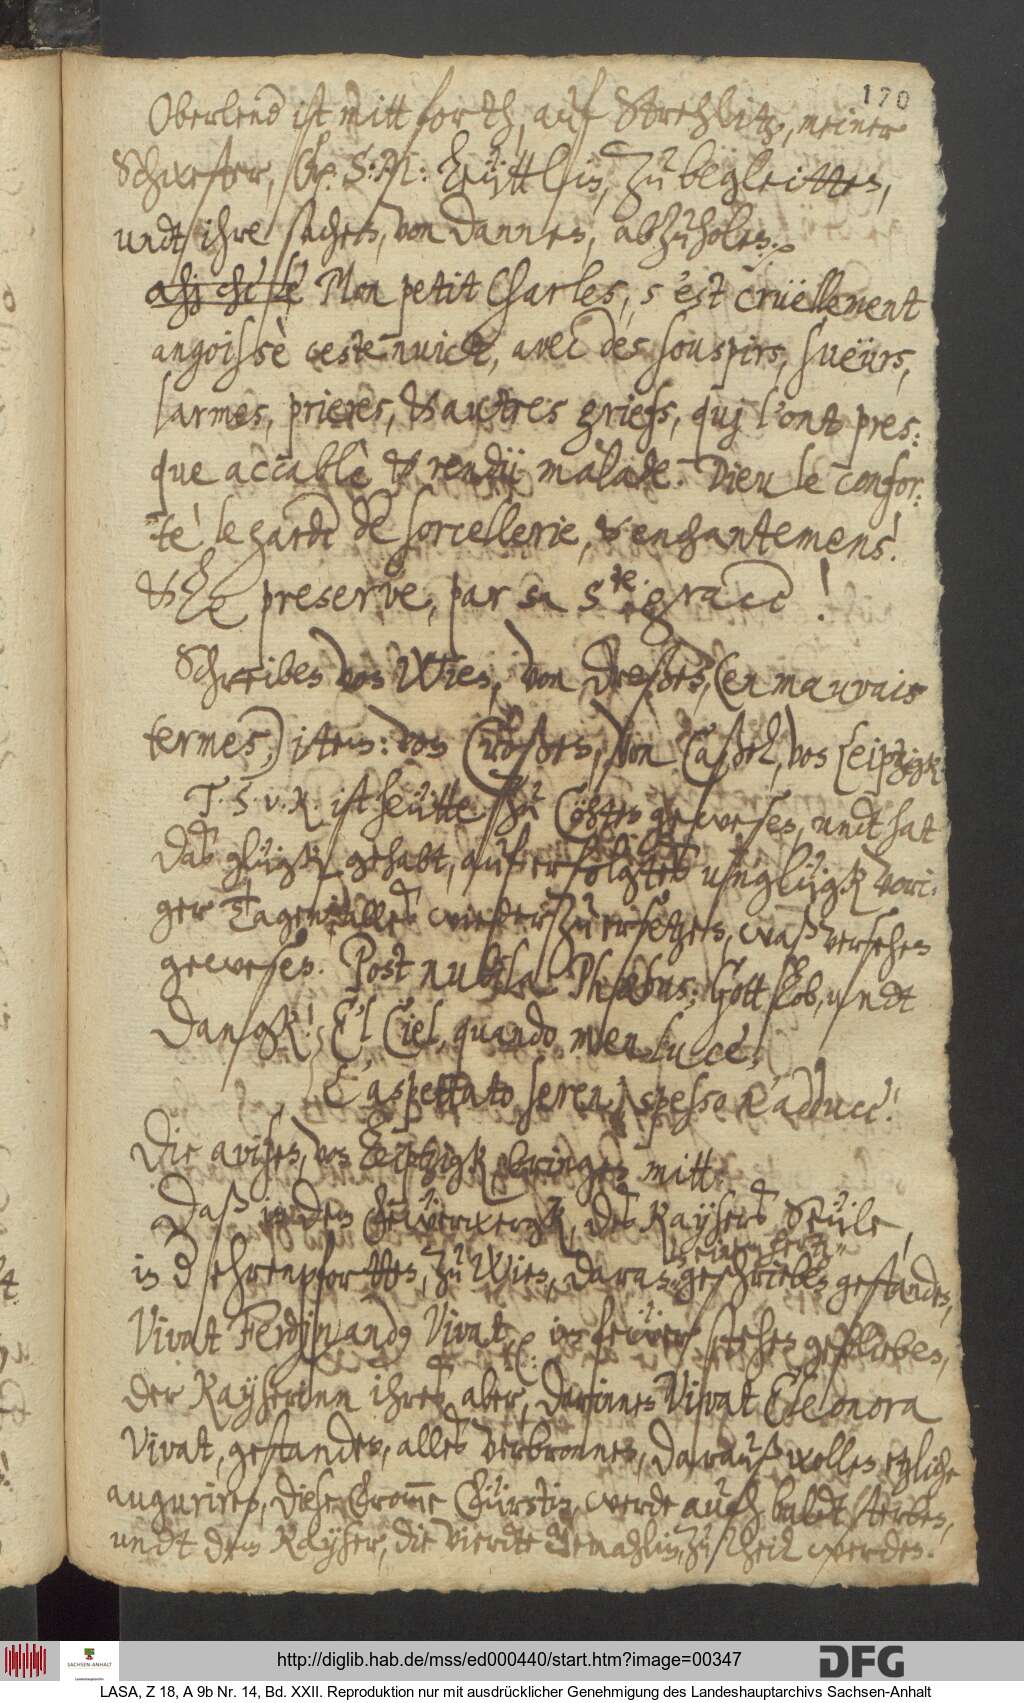 170
Oberlend ist mitt forth, auf Strehlitz, meiner
Schwester, Fr. S: M: Leüttlin, zu begleitten,
undt ihre sachen, von dannen, abzuholen.
Mon petit Charles, s'est cruëllement
angoissè ceste nuict, avec des souspirs, suëurs,
larmes, prieres, & autres griefs, quj l'ont pres:
que accablè & rendü malade. Dieu le confor:
te! le garde de sorcellerie, & enchantemens!
& le preserve, par sa S.te grace!
Schreiben von Wien, von Dreßen, (en mauvais
termes,) item: von Croßen, von Caßel, von Leiptzigk
T. S. v. R. ist heütte zu Cöhten gewesen, undt hat
das glügk gehabt, auf erfolgtes unglügk vori:
ger Tagen, alles wieder zu ersetzen, waß versehen
gewesen. Post nubila Phœbus; Gott lob, undt
Dangk! El Ciel, quando men luce,
L'aspettato seren, spesso t'adduce!
Die avisen, von Leiptzigk bringen mitt:
Daß in dem Feüerwergk, des Kaysers Seüle,
in einem hertz
in der ehrenpforten, zu Wien, daran geschrieben gestanden,
Vivat Ferdinandus Vivat, im feüer stehen geblieben,
der Kayserinn ihres aber, darinnen Vivat Eleonora
Vivat, gestanden, alles verbronnen, darauß wollen etzliche
auguriren, diese fromme Fürstin, werde auch baldt sterben,
undt dem Kayser, die Vierdte Gemahlin, zu theil werden.
http://diglib.hab.de/mss/ed000440/start.htm?image=00347
SACHSEN-ANHALT
DFG
LASA, Z 18, A 9b Nr. 14, Bd. XXII. Reproduktion nur mit ausdrücklicher Genehmigung des Landeshauptarchivs Sachsen-Anhalt